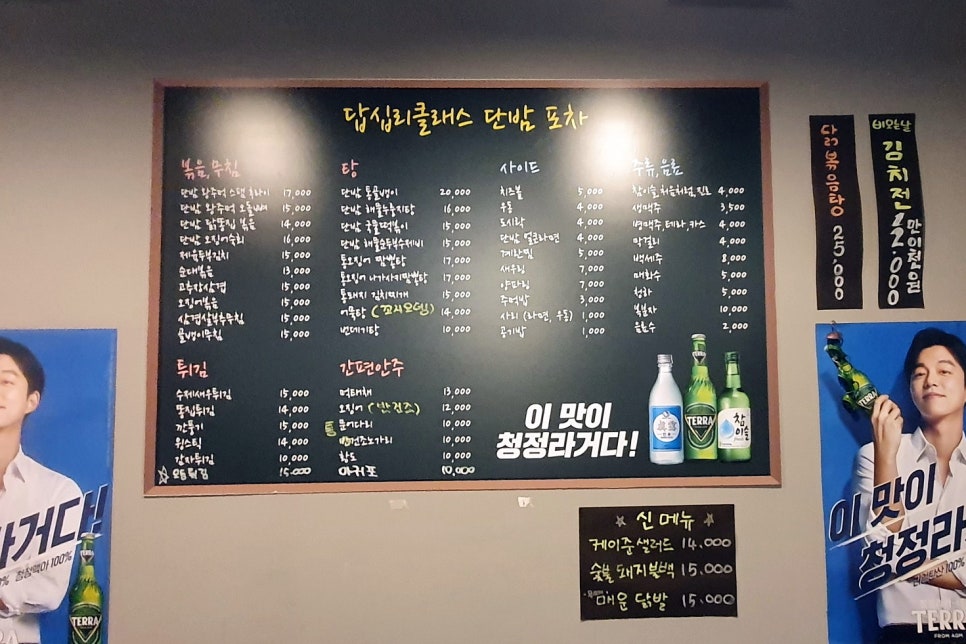 답십리클래스 단밤 포차
볶음,무침
단밤 왕주먹 스팸 후라이 17,000
단밤 왕주먹 오돌뼈 15,000
단밤 닭똥집 볶음 14,000
단밤 오징어숙회 16,000
제육두부김치 15,000
순대볶음 13,000
고추장삼겹 15,000
오징어볶음 15,000
삼겹살부추무침 15,000
골뱅이무침 15,000
탕
단밤 통골뱅이 20,000
단밤 해물누룽지탕 16,000
단밤 국물떡볶이 15,000
단밤 해물순두부수제비 15,000
통오징어 짬뽕탕 17,000
통오징어 나가사끼짬뽕탕 17,000
통돼지 김치찌개 15,000
어묵탕 (꼬치오뎅) 14,000
번데기탕 10,000
사이드
치즈볼 5,000
우동 4,000
도시락 4,000
단밤 얼큰라면 4,000
계란찜 5,000
새우링 7,000
양파링 7,000
주먹밥 3,000
사리 (라면, 우동) 1,000
공기밥 1,000
주류,음료
참이슬,처음처럼,진로 4,000
생맥주 3,500
병맥주,테라,카스 4,000
막걸리 4,000
백세주 8,000
매화수 5,000
청하 5,000
복분자 10,000
음료수 2,000
튀김
수제새우튀김 15,000
똥집튀김 14,000
깐풍기 15,000
윙스틱 14,000
감자튀김 10,000
모듬튀김 15,000
간편안주
먹태채 13,000
오징어 (반건조) 12,000
문어다리 10,000
반건조노가리 10,000
황도 10,000
아귀포 10,000
이 맛이
청정라거다!
TERRA
참이슬
닭볶음탕 25,000
비오는날
김치전
만이천원
12,000
★ 신메뉴 ★
케이준샐러드 14,000
숯불돼지불백 15,000
매운 닭발 15,000
거다!
청정맥아 100%
TERRA
이 맛이
청정라
TERRA
FROM AGM